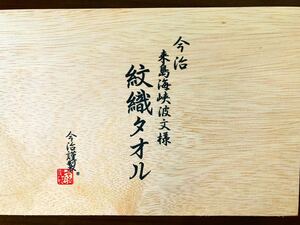 今治
来島海峡波文様
紋織タオル
今治謹製